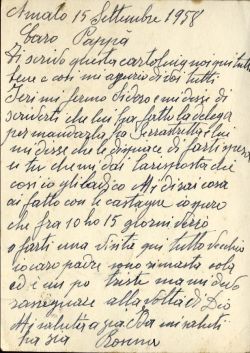 Amato 15 Settembre 1958
Caro Pappà
Ti scrivo questa cartolina noi qui tutti
bene e così mi auguro di voi tutti
Ieri mi fermò Isidoro e mi disse di
scriverti che lui ha fatto la delega
per mandarla fra Serrastretta e lui
mi disse che le dispiace di farti spese
e tu che mi dai la risposta che
così io gli lo dico Mi dirai cosa
ai fatto con le castagne io spero
che fra 10 ho 15 giorni verrò
a farti una visita qui tutto vecchio
io caro padre sono rimasta sola
ed è un po triste ma mi devo
rassegnare alla volontà di Dio
Mi saluterai zia mi saluti
la zia Rosina